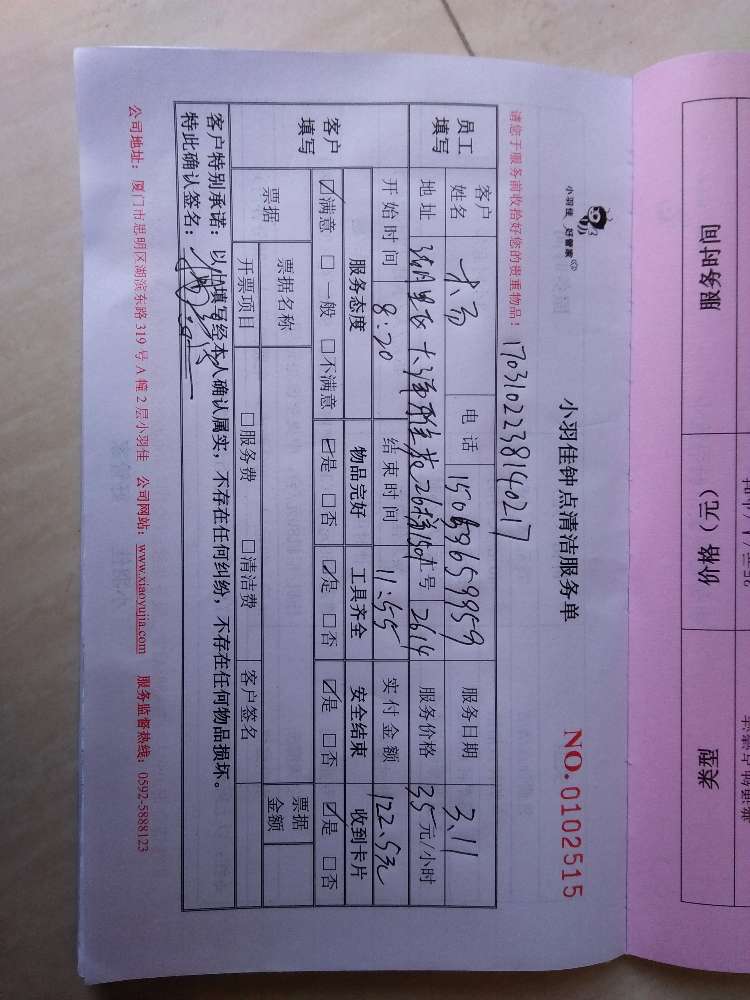 小羽佳 好管家
小羽佳钟点清洁服务单
NO.0102515
请您于服务前收拾好您的贵重物品！
1703102238140217
员工填写
客户姓名
电话
服务日期 3.11
地址
大洋雅苑26梯1501
工号 2614
服务价格 35元/小时
开始时间 8:20
结束时间 11:55
实付金额 122.5元
客户填写
服务态度 物品完好 工具齐全 安全结束 收到卡片
☑满意 □一般 □不满意 ☑是 □否 ☑是 □否 ☑是 □否 ☑是 □否
票据
票据名称
票据金额
开票项目 □服务费 □清洁费 客户签名
客户特别承诺：以上填写经本人确认属实，不存在任何纠纷，不存在任何物品损坏。
特此确认签名：
公司地址：厦门市思明区湖滨东路 319 号 A 幢 2 层小羽佳 公司网站：www.xiaoyujia.com 服务监督热线：0592-5888123
服务时间
价格（元）
类型